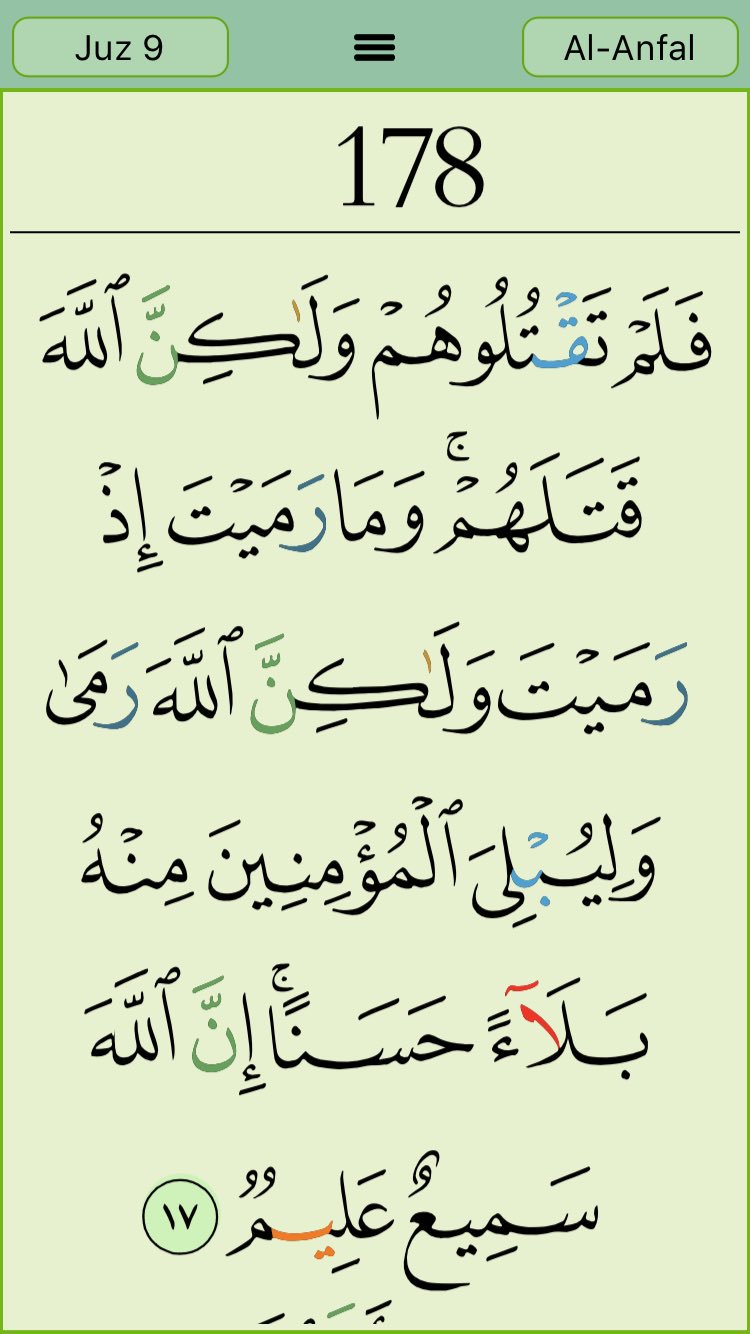 Juz 9
Al-Anfal
178
فَلَمۡ تَقۡتُلُوهُمۡ وَلَٰكِنَّ ٱللَّهَ
قَتَلَهُمۡۚ وَمَا رَمَيۡتَ إِذۡ
رَمَيۡتَ وَلَٰكِنَّ ٱللَّهَ رَمَىٰ
وَلِيُبۡلِيَ ٱلۡمُؤۡمِنِينَ مِنۡهُ
بَلَآءً حَسَنًاۚ إِنَّ ٱللَّهَ
سَمِيعٌ عَلِيمٞ ١٧